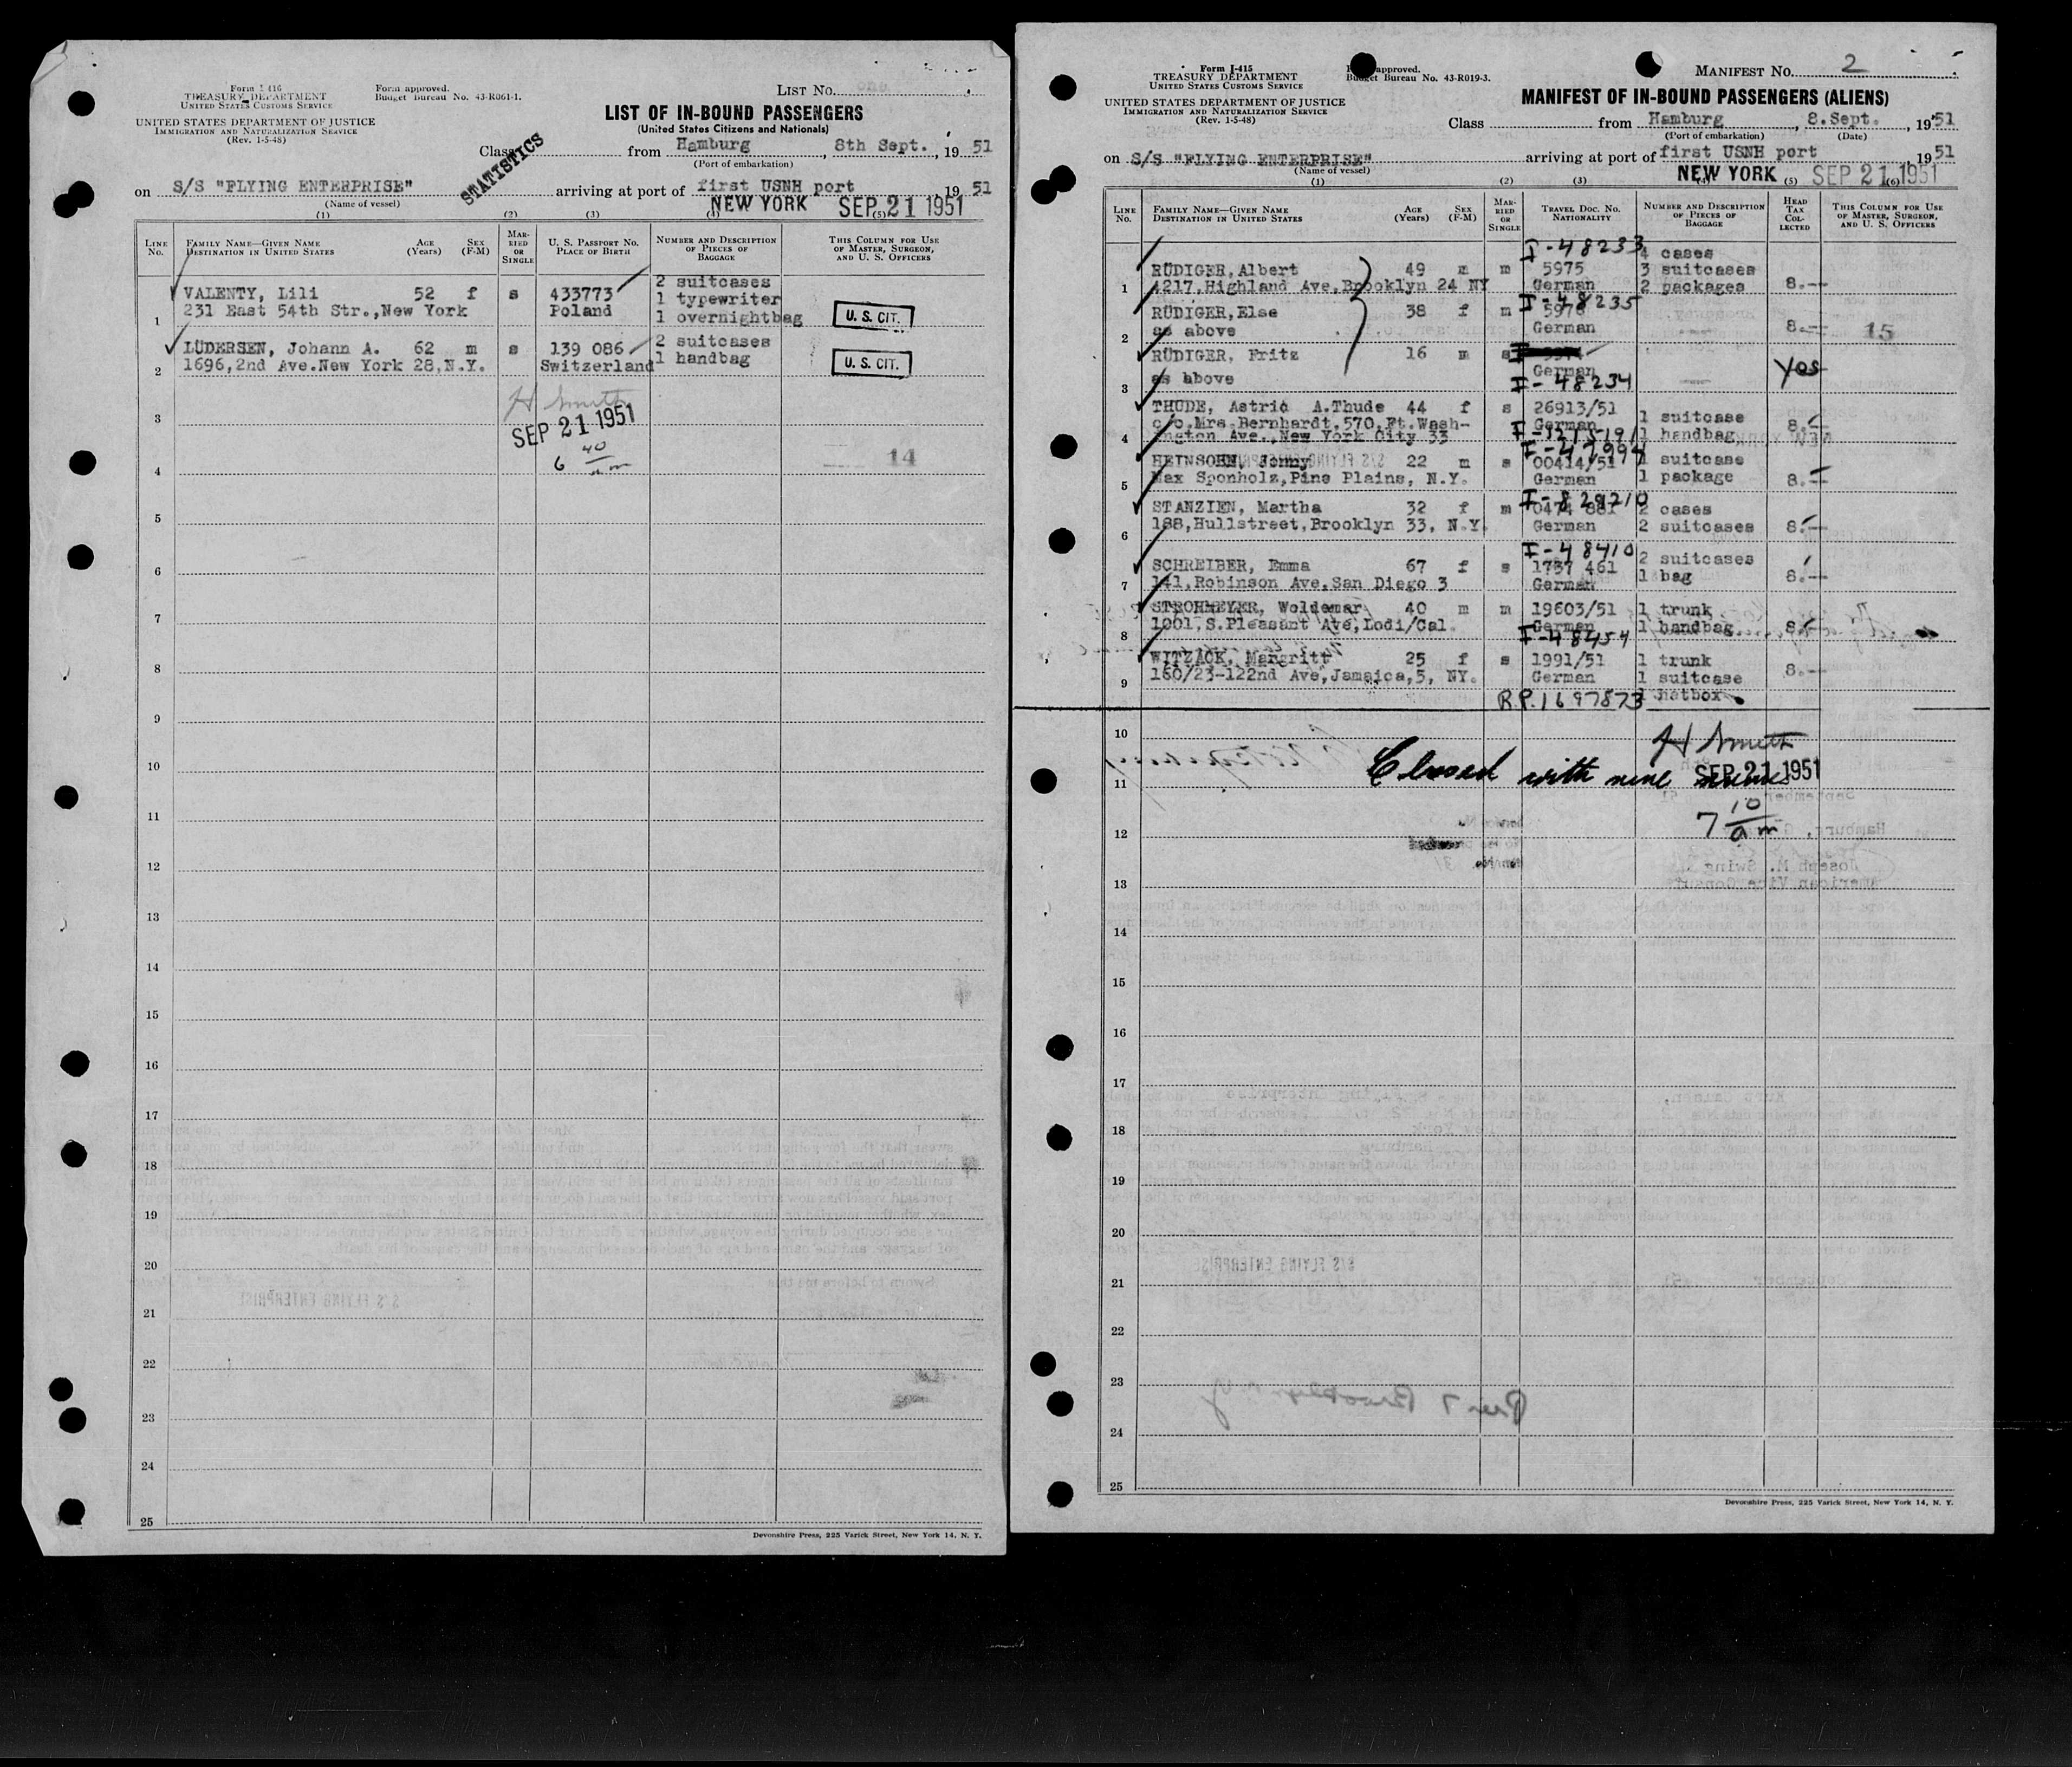 Form I 416
TREASURY DEPARTMENT
UNITED STATES CUSTOMS SERVICE
UNITED STATES DEPARTMENT OF JUSTICE
IMMIGRATION AND NATURALIZATION SERVICE
(Rev. 1-5-48)
Form approved.
Budget Bureau No. 43-R061-1.
LIST No. one
LIST OF IN-BOUND PASSENGERS
(United States Citizens and Nationals)
STATISTICS
Class from Hamburg, 8th Sept., 19 51
(Port of embarkation)
on S/S "FLYING ENTERPRISE" arriving at port of first USNH port 19 51
(Name of vessel)
NEW YORK SEP 21 1951
(1) (2) (3) (4) (5)
LINE No.
FAMILY NAME—GIVEN NAME
DESTINATION IN UNITED STATES
AGE (Years)
SEX (F-M)
MARRIED OR SINGLE
U. S. PASSPORT NO.
PLACE OF BIRTH
NUMBER AND DESCRIPTION OF PIECES OF BAGGAGE
THIS COLUMN FOR USE OF MASTER, SURGEON, AND U. S. OFFICERS
2 suitcases
VALENTY, Lili 52 f s 433773 1 typewriter
1 231 East 54th Str.,New York Poland 1 overnightbag U. S. CIT.
LÜDERSEN, Johann A. 62 m s 139 086 2 suitcases
2 1696,2nd Ave.New York 28,N.Y. Switzerland 1 handbag U. S. CIT.
H Smith
3 SEP 21 1951
6 40 am
4 14
5
6
7
8
9
10
11
12
13
14
15
16
17
18
19
20
21
22
23
24
25
Devonshire Press, 225 Varick Street, New York 14, N. Y.
Form I-415
TREASURY DEPARTMENT
UNITED STATES CUSTOMS SERVICE
UNITED STATES DEPARTMENT OF JUSTICE
IMMIGRATION AND NATURALIZATION SERVICE
(Rev. 1-5-48)
approved.
Budget Bureau No. 43-R019-3.
MANIFEST No. 2
MANIFEST OF IN-BOUND PASSENGERS (ALIENS)
Class from Hamburg, 8.Sept., 19 51
(Port of embarkation) (Date)
on S/S "FLYING ENTERPRISE" arriving at port of first USNH port 19 51
(Name of vessel)
NEW YORK SEP 21 1951
(1) (2) (3) (5) (6)
LINE No.
FAMILY NAME—GIVEN NAME
DESTINATION IN UNITED STATES
AGE (Years)
SEX (F-M)
MARRIED OR SINGLE
TRAVEL DOC. NO.
NATIONALITY
NUMBER AND DESCRIPTION OF PIECES OF BAGGAGE
HEAD TAX COLLECTED
THIS COLUMN FOR USE OF MASTER, SURGEON, AND U. S. OFFICERS
I-48233 4 cases
RÜDIGER,Albert 49 m m 5975 3 suitcases
1 4217,Highland Ave,Brooklyn 24 NY German 2 packages 8.—
I-48235
RÜDIGER,Else 38 f m 5976
2 as above German 8.— 15
RÜDIGER, Fritz 16 m s
3 as above German Yes
I-48234
THUDE, Astrid A.Thude 44 f s 26913/51 1 suitcase
c/o.Mrs.Bernhardt,570,Ft.Wash- German 8.—
4 ington Ave.,New York City 33 1 handbag
I-47994
HEINSOHN, Jonny 22 m s 00414/51 1 suitcase
5 Max Sponholz,Pine Plains, N.Y. German 1 package 8.—
STANZIEN, Martha 32 f m 0474 881 2 cases
6 188,Hullstreet,Brooklyn 33, N.Y. German 2 suitcases 8.—
I-48410
SCHREIBER, Emma 67 f s 1737 461 2 suitcases
7 141,Robinson Ave,San Diego 3 German 1 bag 8.—
STROHMEYER, Woldemar 40 m m 19603/51 1 trunk
8 1001,S.Pleasant Ave,Lodi/Cal. German 1 handbag 8.—
I-48454
WITZACK, Margritt 25 f s 1991/51 1 trunk
9 160/23-122nd Ave,Jamaica,5, NY. German 1 suitcase 8.—
R.P.1697873 1 hatbox
10 H Smith
11 Closed with nine names SEP 21 1951
7 10 am
12
13
14
15
16
17
18
19
20
21
22
23
24
25
Devonshire Press, 225 Varick Street, New York 14, N. Y.